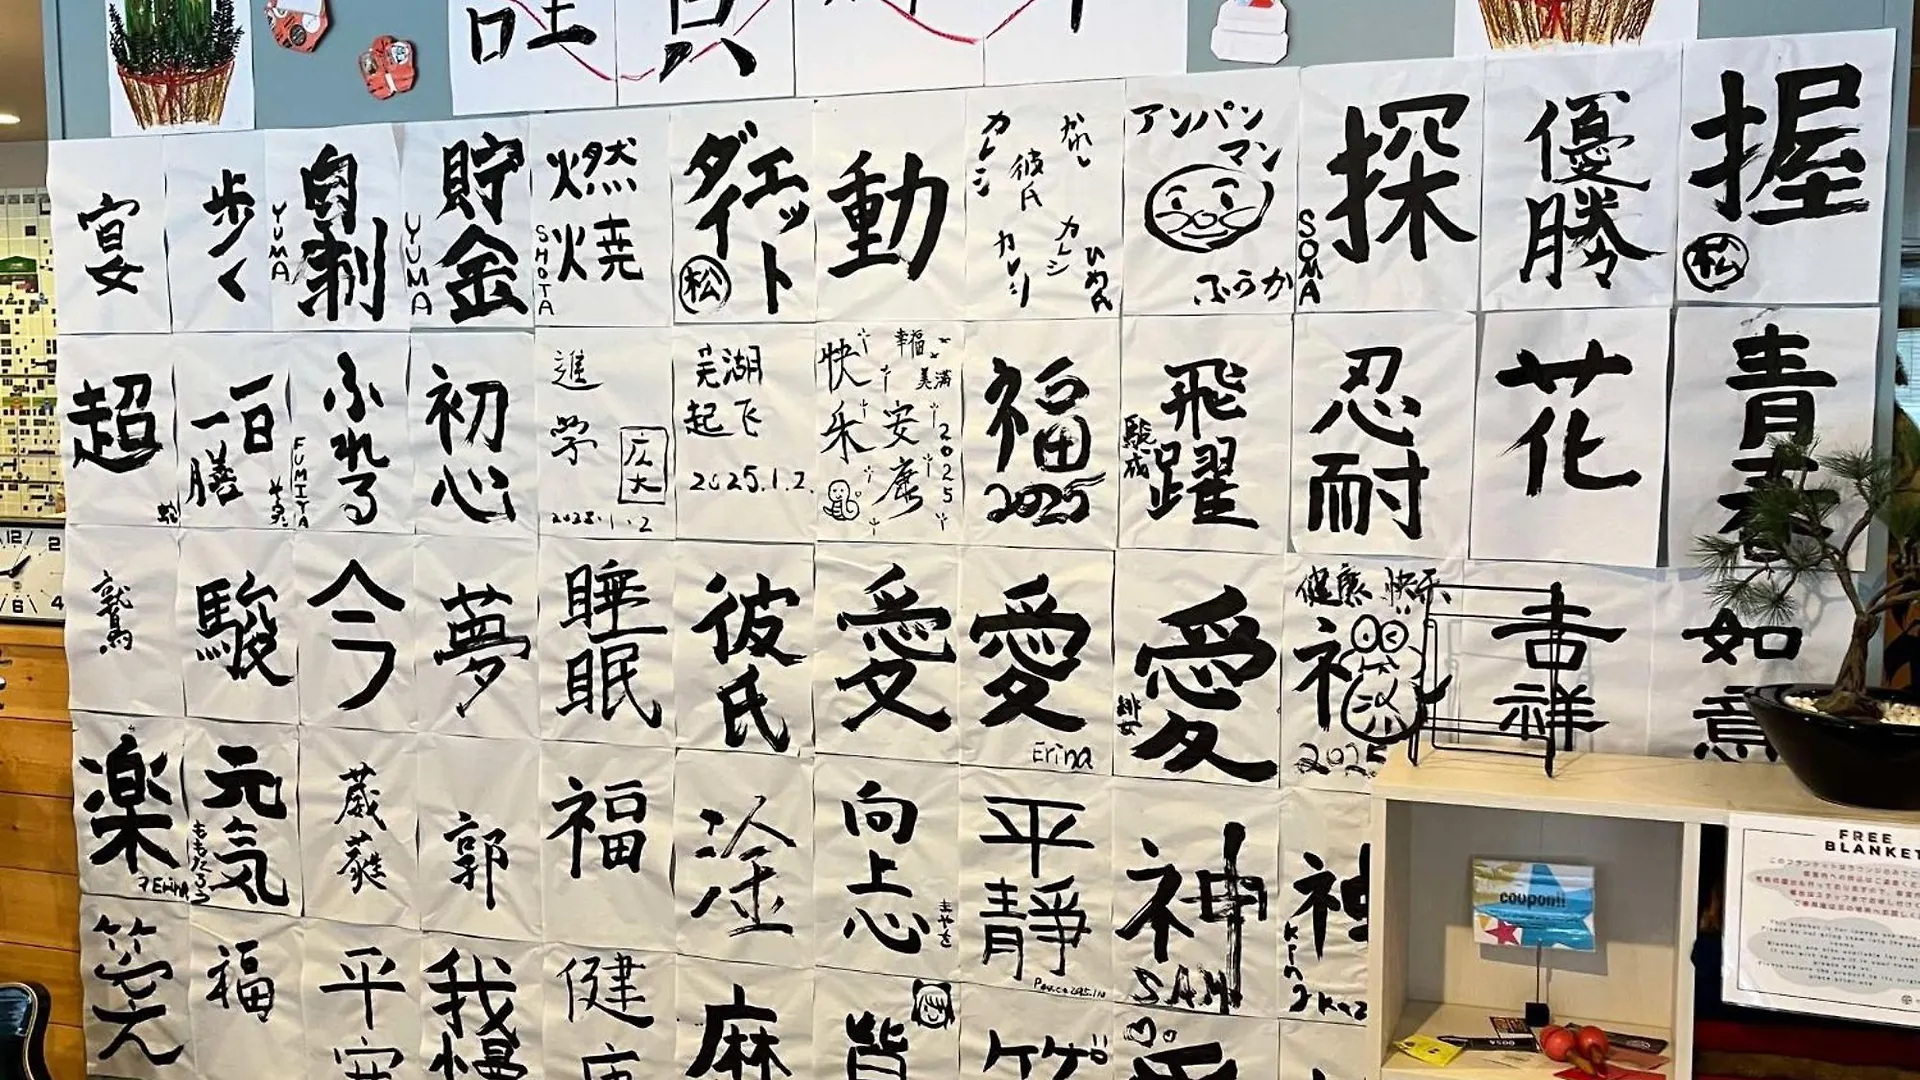 謹賀
宴
歩く
自制
YUMA
貯金
YUMA
燃焼
SHOTA
ダイエット
松
動
カレシ
かれし
彼氏
カレシ
カレシ
ひめ氏
アンパンマン
ふうか
探
SOMA
優勝
握
松
超
一日一膳
ふれる
FUMITA
初心
進学
広大
2025.1.2
芜湖
起飞
2025.1.2.
快乐
幸福
美满
安康
2025
福
2025
飛躍
駿成
忍耐
花
青春
12
2
4
6
鷲
駿
今
夢
睡眠
彼氏
愛
愛
Erina
愛
緋女
健康 快乐
2025
吉祥
如意
楽
Erina
元気
ももたろう
葳蕤
郭
福
淦
向上心
まやを
平靜
神
SAM
神
笑
福
平安
我慢
健康
麻
皆
FREE
BLANKET
coupon!!